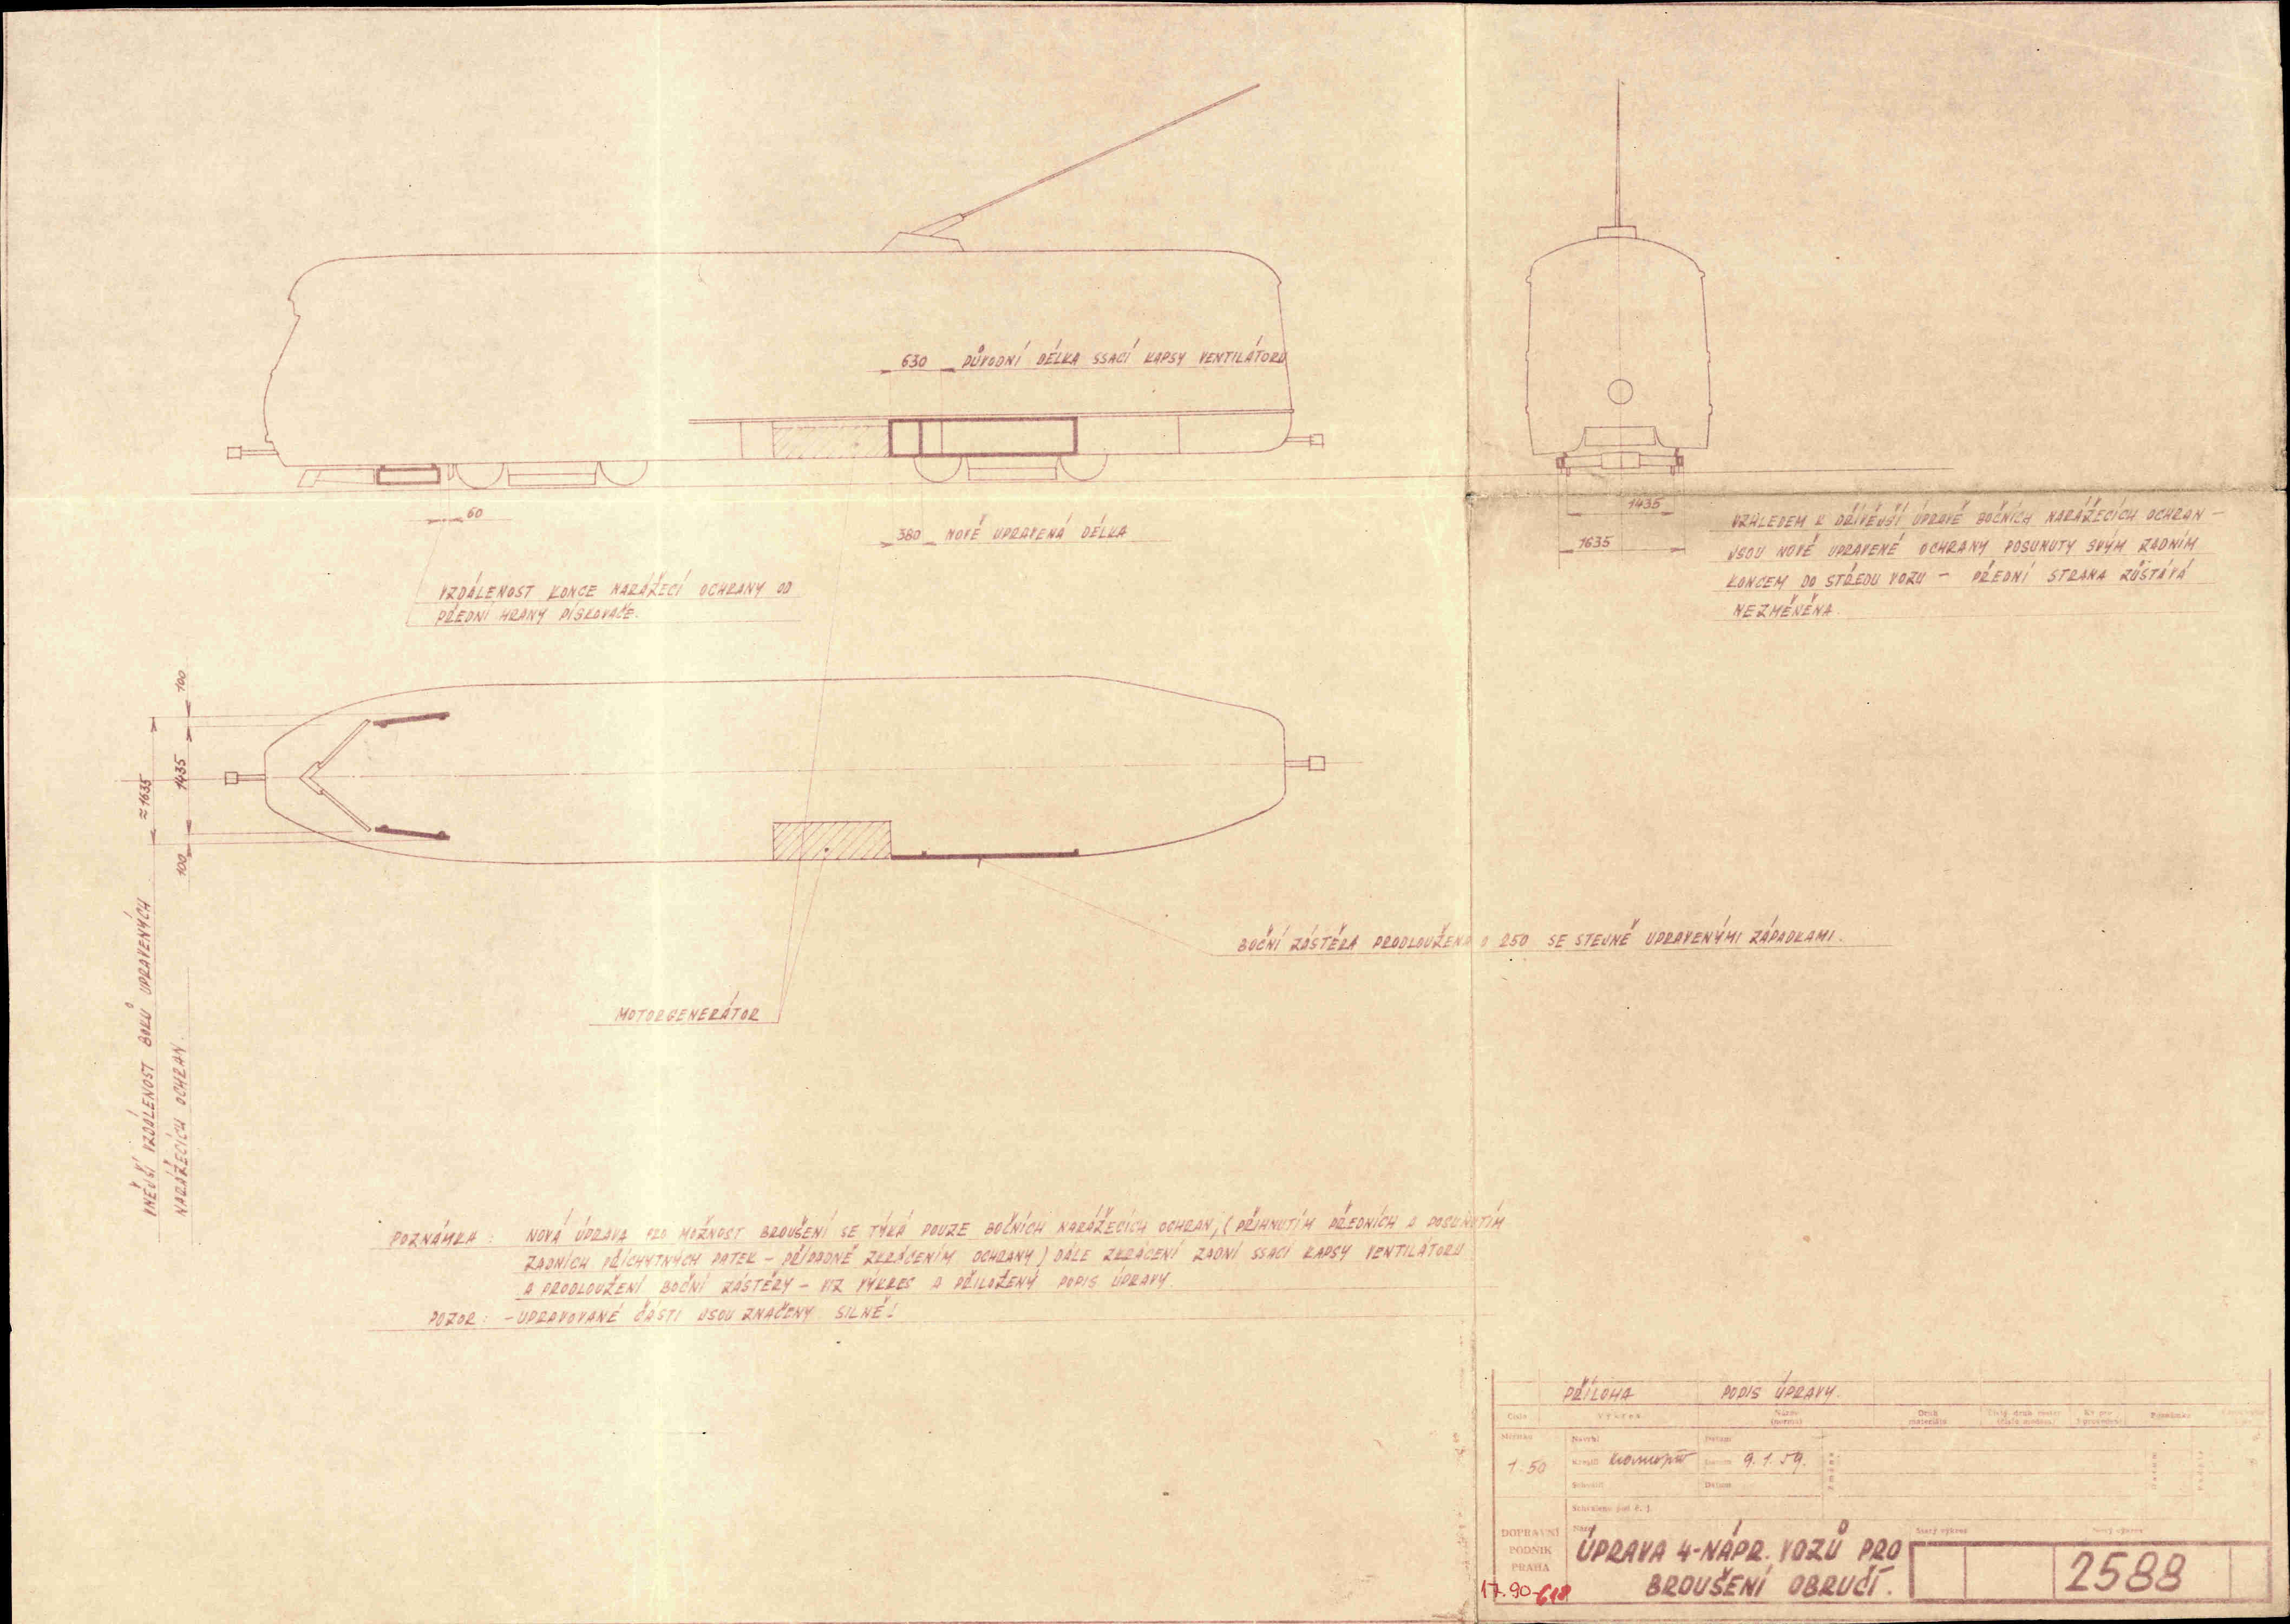 630 PŮVODNÍ DÉLKA SSACÍ KAPSY VENTILÁTORU
60
380 NOVĚ UPRAVENÁ DÉLKA
VZDÁLENOST KONCE NARÁŽECÍ OCHRANY OD
PŘEDNÍ HRANY PÍSKOVAČE.
1435
1635
VZHLEDEM K DŘÍVĚJŠÍ ÚPRAVĚ BOČNÍCH NARÁŽECÍCH OCHRAN -
JSOU NOVĚ UPRAVENÉ OCHRANY POSUNUTY SVÝM ZADNÍM
KONCEM DO STŘEDU VOZU - PŘEDNÍ STRANA ZŮSTÁVÁ
NEZMĚNĚNA.
100
1435
≈1635
100
VNĚJŠÍ VZDÁLENOST BOKŮ UPRAVENÝCH
NARÁŽECÍCH OCHRAN.
BOČNÍ ZÁSTĚRA PRODLOUŽENA O 250 SE STEJNĚ UPRAVENÝMI ZÁPADKAMI.
MOTORGENERÁTOR
POZNÁMKA: NOVÁ ÚPRAVA PRO MOŽNOST BROUŠENÍ SE TÝKÁ POUZE BOČNÍCH NARÁŽECÍCH OCHRAN, (PŘIHNUTÍM PŘEDNÍCH A POSUNUTÍM
ZADNÍCH PŘÍCHYTNÝCH PATEK - PŘÍPADNĚ ZKRÁCENÍM OCHRANY) DÁLE ZKRÁCENÍ ZADNÍ SSACÍ KAPSY VENTILÁTORU
A PRODLOUŽENÍ BOČNÍ ZÁSTĚRY - VIZ VÝKRES A PŘILOŽENÝ POPIS ÚPRAVY.
POZOR: - UPRAVOVANÉ ČÁSTI JSOU ZNAČENY SILNĚ!
PŘÍLOHA POPIS ÚPRAVY.
Číslo Výkres Název (norma) Druh materiálu Poznámka
Měřítko Navrhl Datum
1:50 Kreslil Datum 9.1.59. Změna
Schválil Datum
Schváleno pod č. j.
DOPRAVNÍ PODNIK PRAHA
Název
ÚPRAVA 4-NÁPR. VOZŮ PRO
BROUŠENÍ OBRUČÍ.
Starý výkres Nový výkres
2588
17.90-618